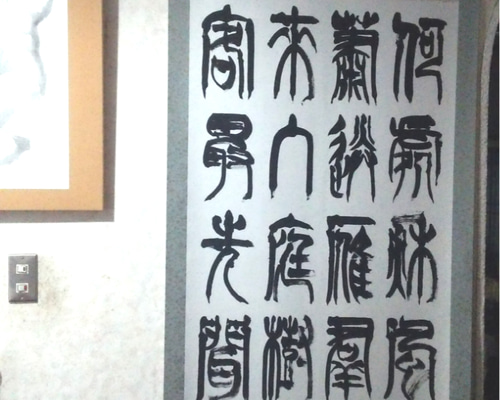 何處秋風
蕭送雁群
來入庭樹
客最先聞